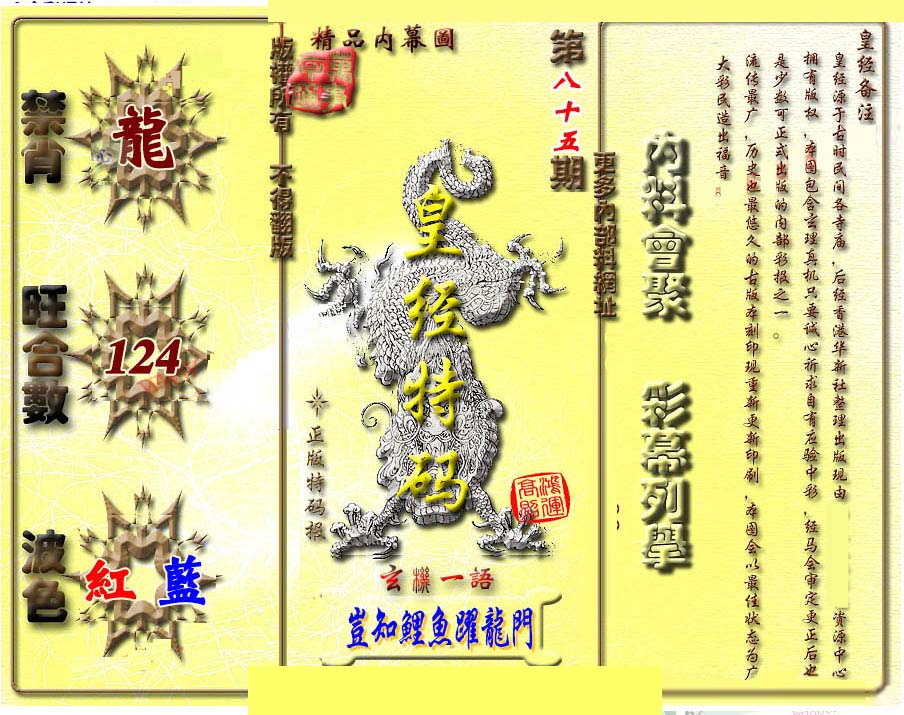 精品内幕圖
版權所有 不得翻版
第八十五期
更多内部料網址
禁肖
龍
旺合數
124
波色
紅 藍
皇经特码
正版特码报
鴻運高照
玄機一語
豈知鯉魚躍龍門
内料會聚
彩幕列舉
皇经备注
皇经源于古时民间各寺庙,后经香港华新社整理出版现由 资源中心
拥有版权,本图包含玄理真机只要诚心祈求自有应验中彩,经马会审定更正后也
是少数可正式出版的内部彩报之一。
流传最广,历史也最悠久的古版本刻印现重新更新印刷,本图会以最佳状态为广
大彩民造出福音